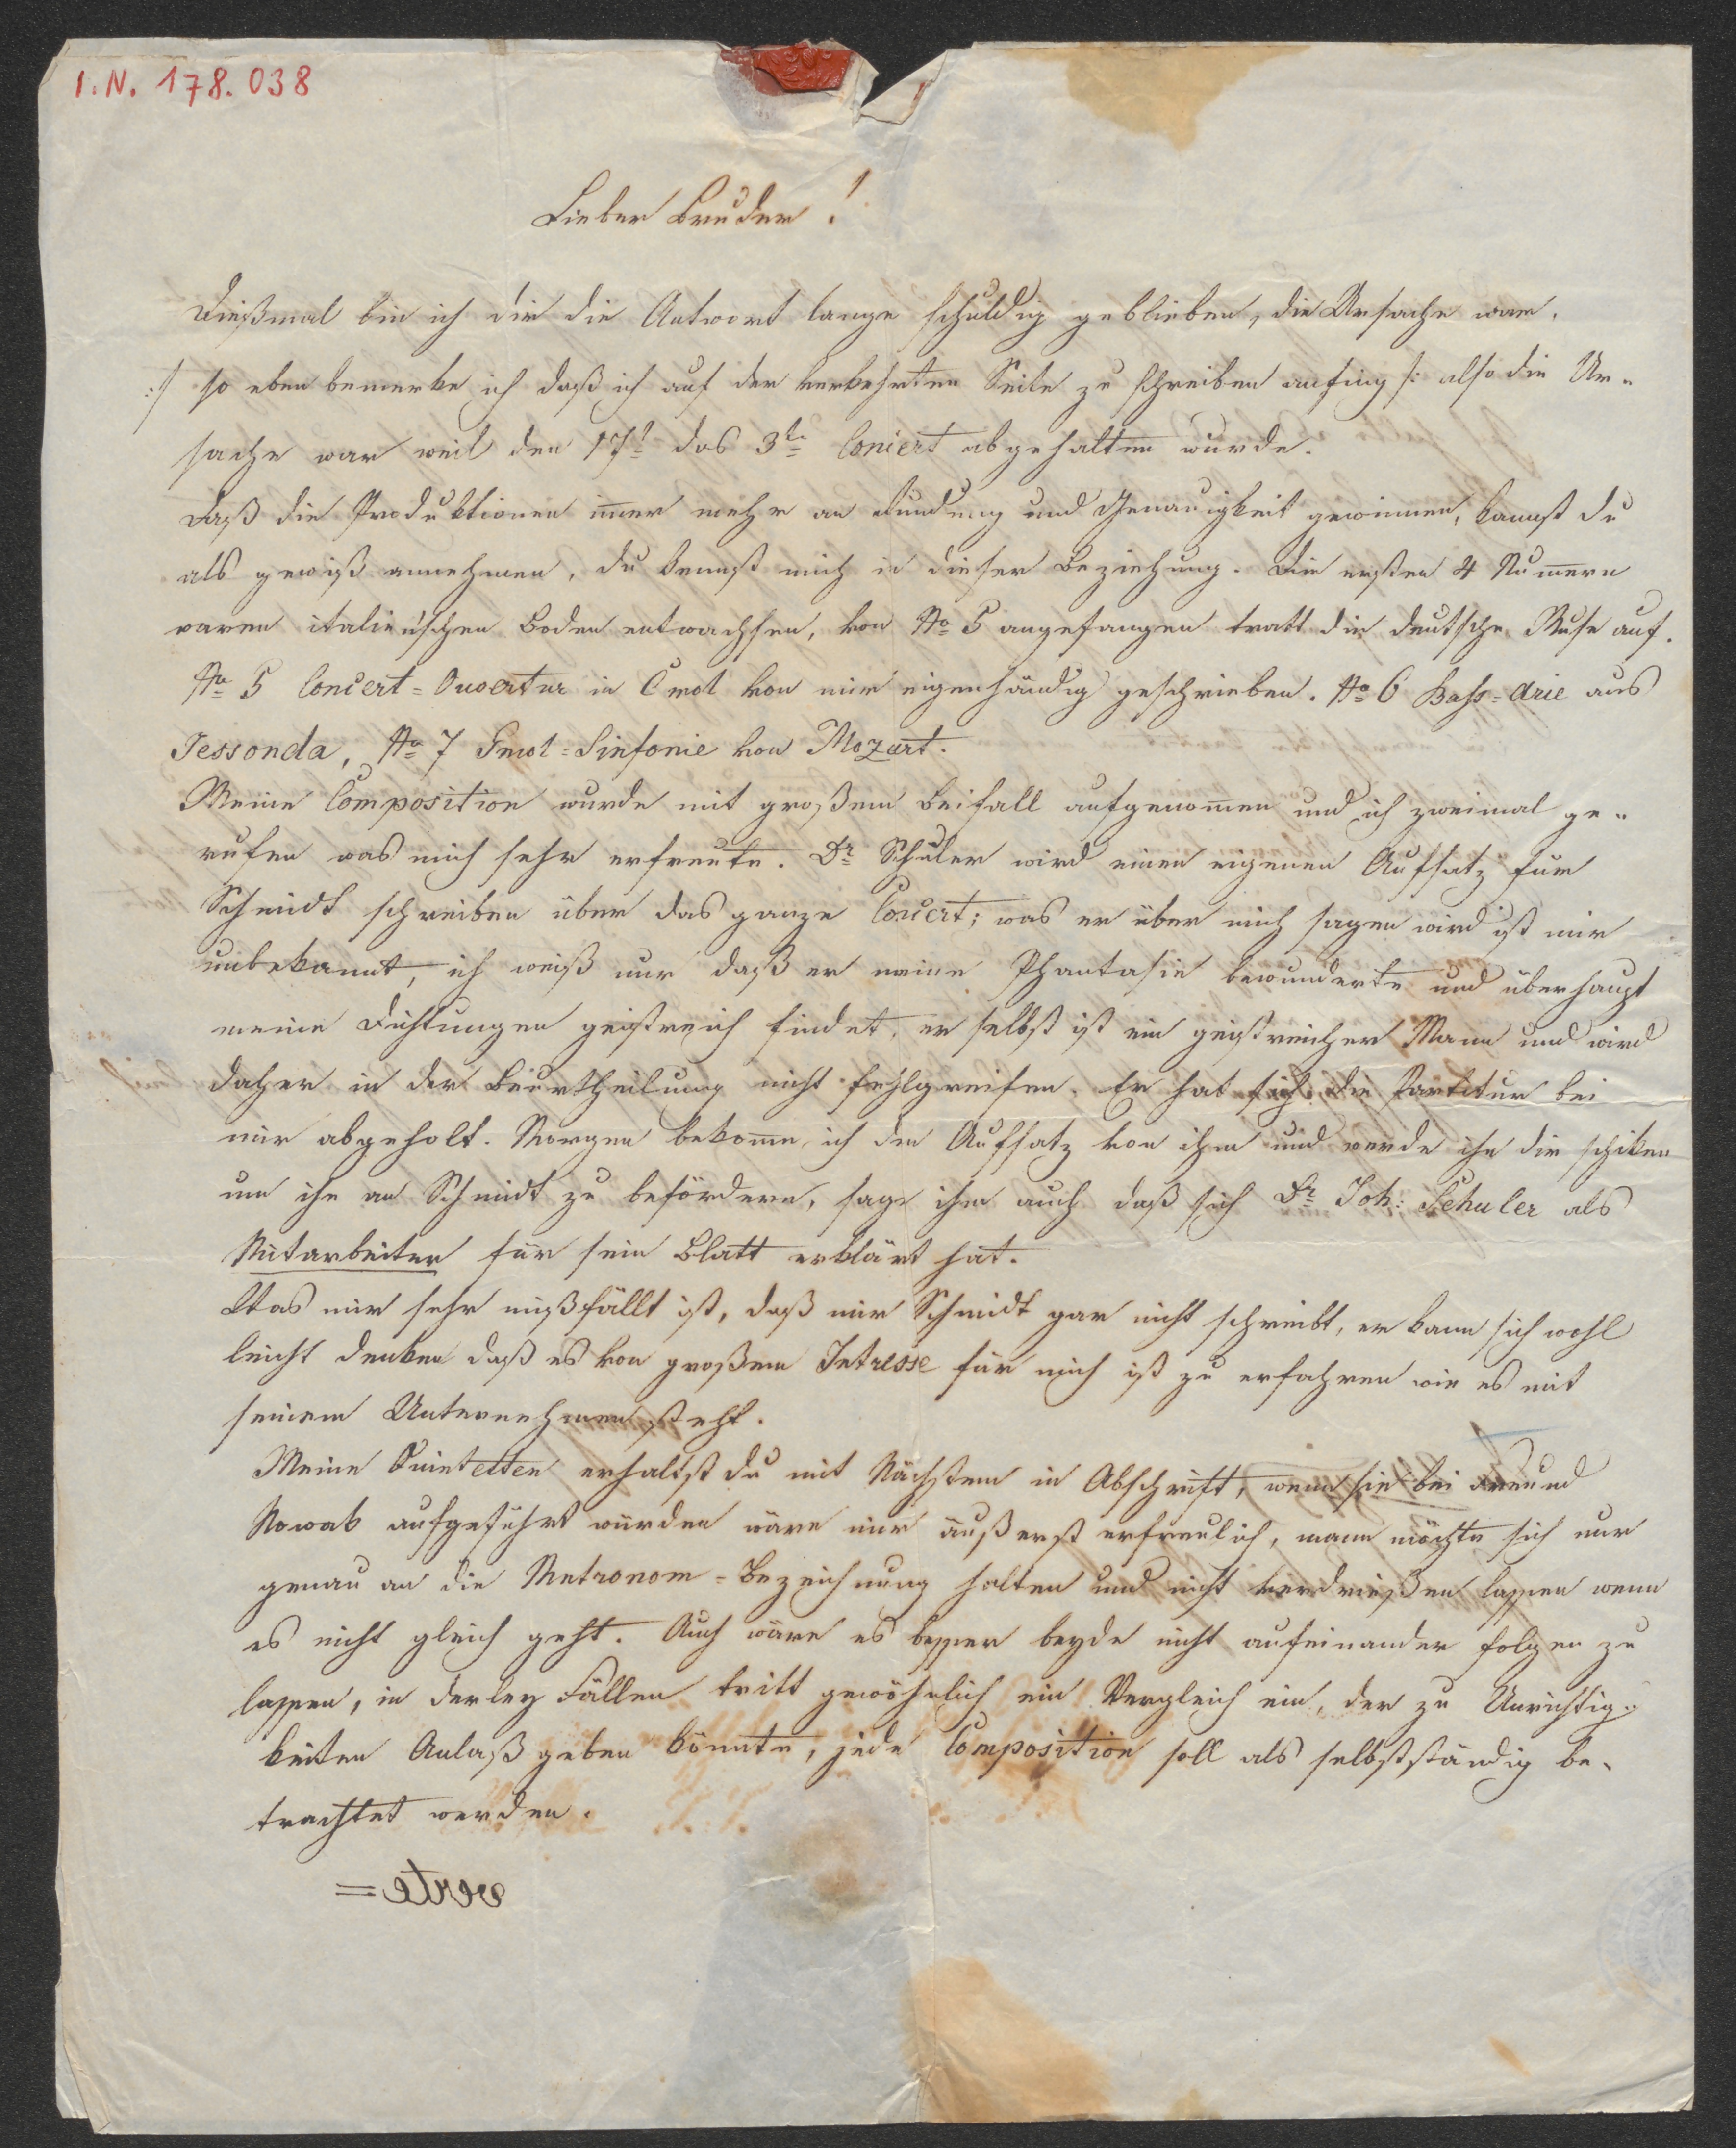 I.N. 178.038
Lieber Bruder!
Dießmal bin ich dir die Antwort lange schuldig geblieben, die Ursache war,
:/ so eben bemerke ich daß ich auf der verkehrten Seite zu schreiben anfing /: also die Ur„
sache war weil den 17t das 3te Concert abgehalten wurde.
Daß die Produktionen imer mehr an Rundung und Genauigkeit gewinnen, kannst du
als gewiß annehmen, du kennst mich in dieser Beziehung. Die ersten 4 Numern
waren italienischen Boden entwachsen, von No 5 angefangen tratt die deutsche Muse auf.
No 5 Concert=Ouvertur in C mol von mir eigenhändig geschrieben. No 6 Bass=Arie aus
Jessonda, No 7 Gmol=Sinfonie von Mozart.
Meine Composition wurde mit großem Beifall aufgenomen und ich zweimal ge„
rufen was mich sehr erfreute. Dr Schuler wird einen eigenen Aufsatz für
Schmidt schreiben über das ganze Concert; was er über mich sagen wird ist mir
unbekannt, ich weiß nur daß er meine Phantasie bewunderte und überhaupt
meine Dichtungen geistreich findet, er selbst ist ein geistreicher Mann und wird
daher in der Beurtheilung nicht fehlgreifen. Er hat sich die Partitur bei
mir abgeholt. Morgen bekome ich den Aufsatz von ihm und werde ihn dir schiken
um ihn an Schmidt zu befördern, sage ihm auch daß sich Dr Joh: Schuler als
Mitarbeiter für sein Blatt erklärt hat.
Was mir sehr mißfällt ist, daß mir Schmidt gar nicht schreibt, er kann sich wohl
leicht denken daß es von großem Intresse für mich ist zu erfahren wie es mit
seinem Unternehmen steht.
Meine Quintetten erhaltst du mit Nächstem in Abschrift, wenn sie bei Freund
Nowak aufgeführt würden wäre mir äußerst erfreulich, mann möchte sich nur
genau an die Metronom=Bezeichnung halten und nicht verdrießen lassen wenn
es nicht gleich geht. Auch wäre es besser beyde nicht aufeinander folgen zu
lassen, in derley Fällen tritt gewöhnlich ein Vergleich ein, der zu Unrichtig„
keiten Anlaß geben könnte, jede Composition soll als selbstständig be„
trachtet werden.
verte=